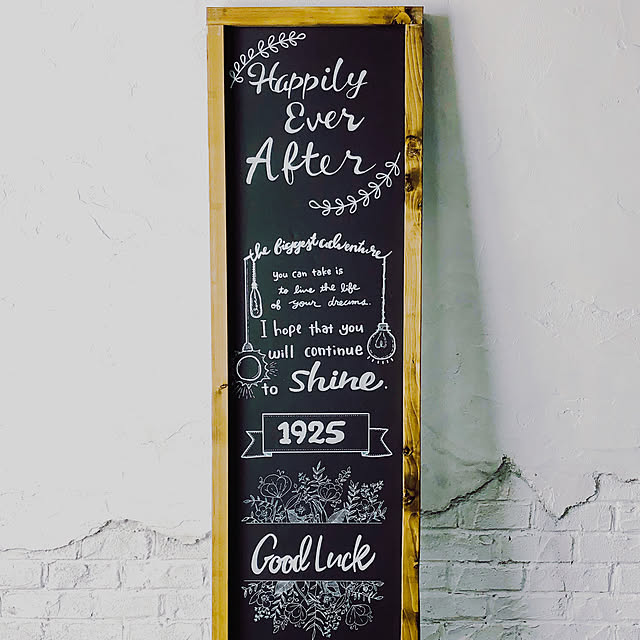 Happily
Ever
After
the biggest adventure
you can take is
to live the life
of your dreams.
I hope that you
will continue
to shine.
1925
Good Luck